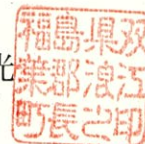 光
福島県双
葉郡浪江
町長之印